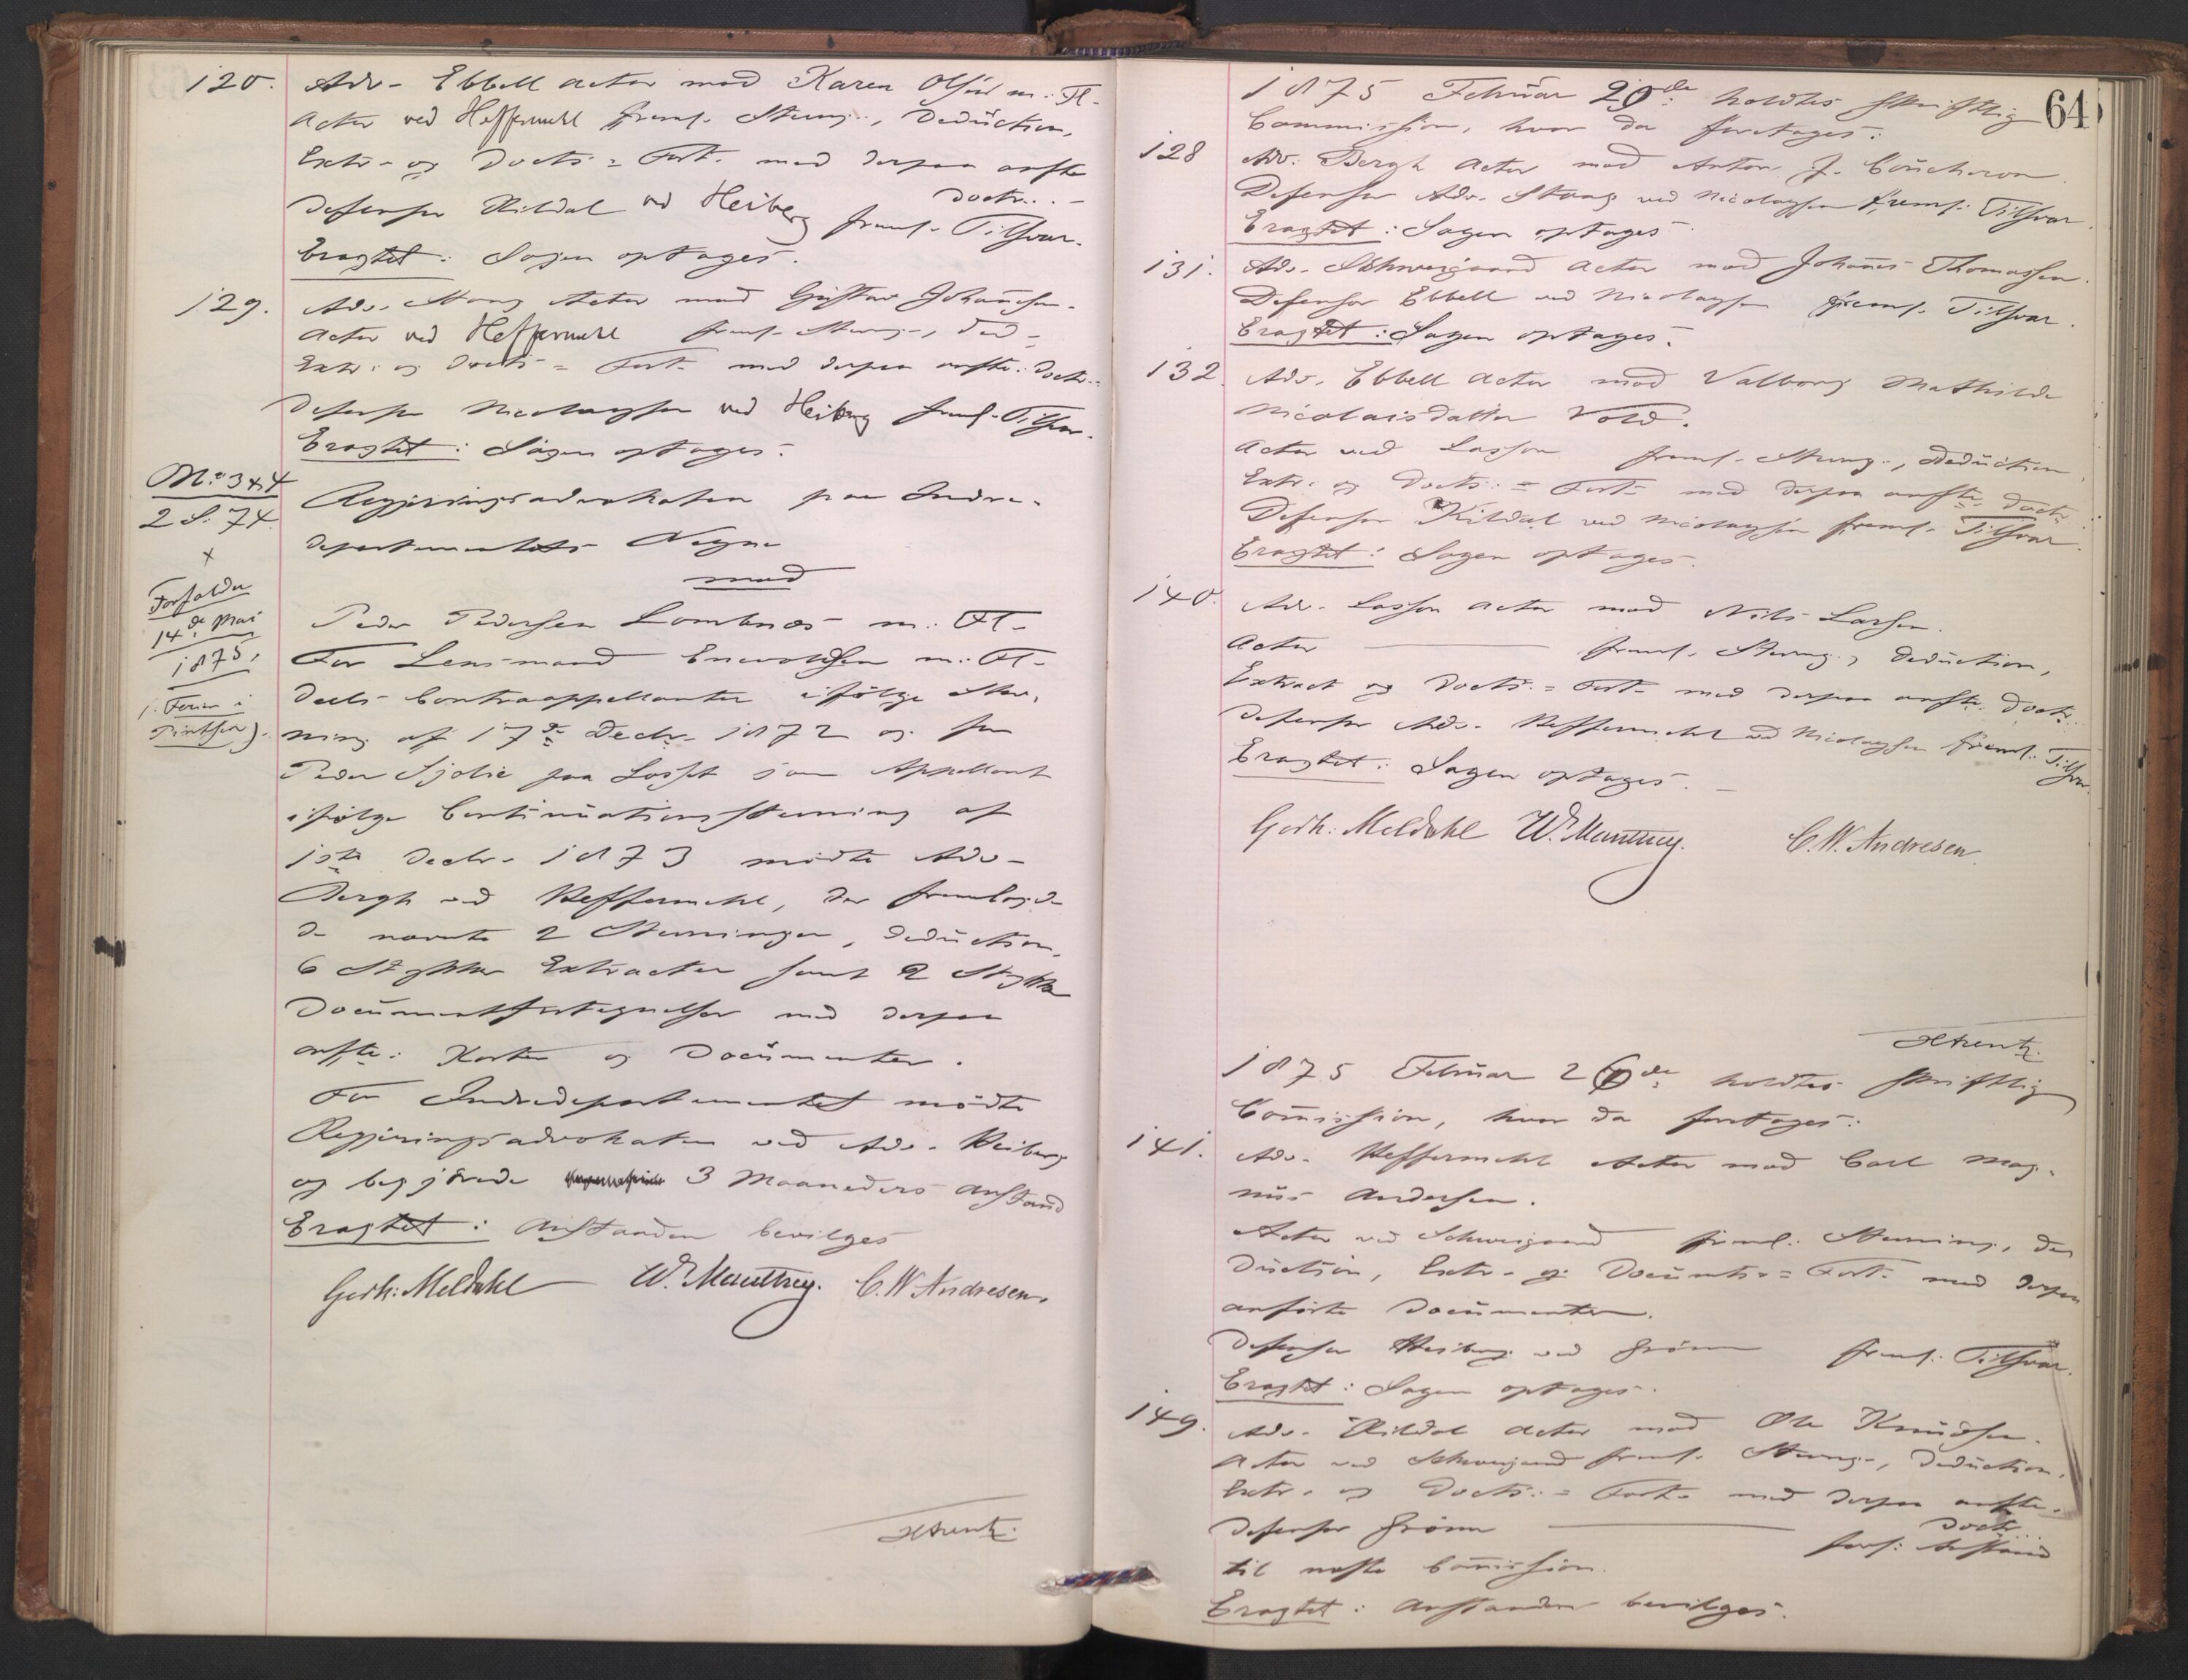 120. Adv. Ebbell Actor mod Karen Olsen m: Fl.
Actor ved Heffermehl freml. Stevng., Deduction,
Extr. og Docts.=Fort. med derpaa anfte
Doctr.
Defensor Kildal ved Heiberg freml. Tilsvar.
Eragtet: Sagen optages.
129. Adv. Stang Actor mod Gustav Johannesen.
Actor ved Heffermehl freml. Stevng., Ded.
Extr. og Docts=Fort. med derpaa anfte. Doctr.
Defensor Nicolaysen ved Heiberg freml. Tilsvar.
Eragtet: Sagen optages.
No 3 & 4
2 S. 74.
Regjeringsadvokaten paa Indre-
departementets Vegne
mod
Forfalder
14de Mai
1875,
(: Ferien i
Pintsen).
Peder Pedersen Lombnæs m: Fl.
For Lensmand Enevoldsen m: Fl.
dels Contraappellanter ifølge Stev.
ning af 17de Decbr. 1872 og for
Peder Sjølie paa Losset som Appellant
ifølge Continuationsstevning af
1ste Decbr. 1873 mødte Adv.
Bergh ved Heffermehl, der fremlagde
de nævnte 2 Stevninger, Deduction,
6 Stykker Extracter samt 2 Stykker
Documentfortegnelser med derpaa
anfte: Karter og Documenter.
For Indredepartementet mødte
Regjeringsadvokaten ved Adv. Heiberg
og begjærede 3 Maaneders Anstand
Eragtet: Anstanden bevilges
Gerh: Meldahl W. Mauttrey. C. W Andresen.
64
1875 Februar 20de: holdtes skriftlig
Commission, hvor da foretages:
128 Adv. Bergh Actor mod Anton J. Coucheron.
Defensor Adv. Stang ved Nicolaysen freml. Tilsvar.
Eragtet: Sagen optages
131. Adv. Schweigaard Actor mod Johannes Thomassen.
Defensor Ebbell ved Nicolaysen freml. Tilsvar.
Eragtet: Sagen optages.
132. Adv. Ebbell Actor mod Valborg Mathilde
Nicolaisdatter Vold.
Actor ved Lasson freml. Stevng., Deduction
Extr. og Docts.=Fort. med derpaa anfte. Doctr.
Defensor Kildal ved Nicolaysen freml. Tilsvar.
Eragtet: Sagen optages.
140. Adv. Lasson Actor mod Nils Larsen.
Actor freml. Stevng., Deduction,
Extract og Docts.=Fort. med derpaa anfte. Doctr.
Defensor Adv. Heffermehl ved Nicolaysen freml. Tilsvar.
Eragtet: Sagen optages.
Gerh: Meldahl W. Mauttrey. C. W. Andresen.
1875 Februar 26de: holdtes skriftlig
Commission, hvor da foretages:
141. Adv. Heffermehl Actor mod Carl Mag-
nus Andersen.
Actor ved Schweigaard freml. Stevning, De
duction, Extr. og Documts.=Fort. med derpaa
anførte Documenter.
Defensor Heiberg ved Grønn freml. Tilsvar.
Eragtet: Sagen optages.
149. Adv. Kildal Actor mod Ole Knudsen.
Actor ved Schweigaard freml. Stevng., Deduction,
Extr. og Docts.=Fort. med derpaa anfte.
Doctr.
Defensor Grønn forl: Anstand
til næste Commission.
Eragtet: Anstanden bevilges.